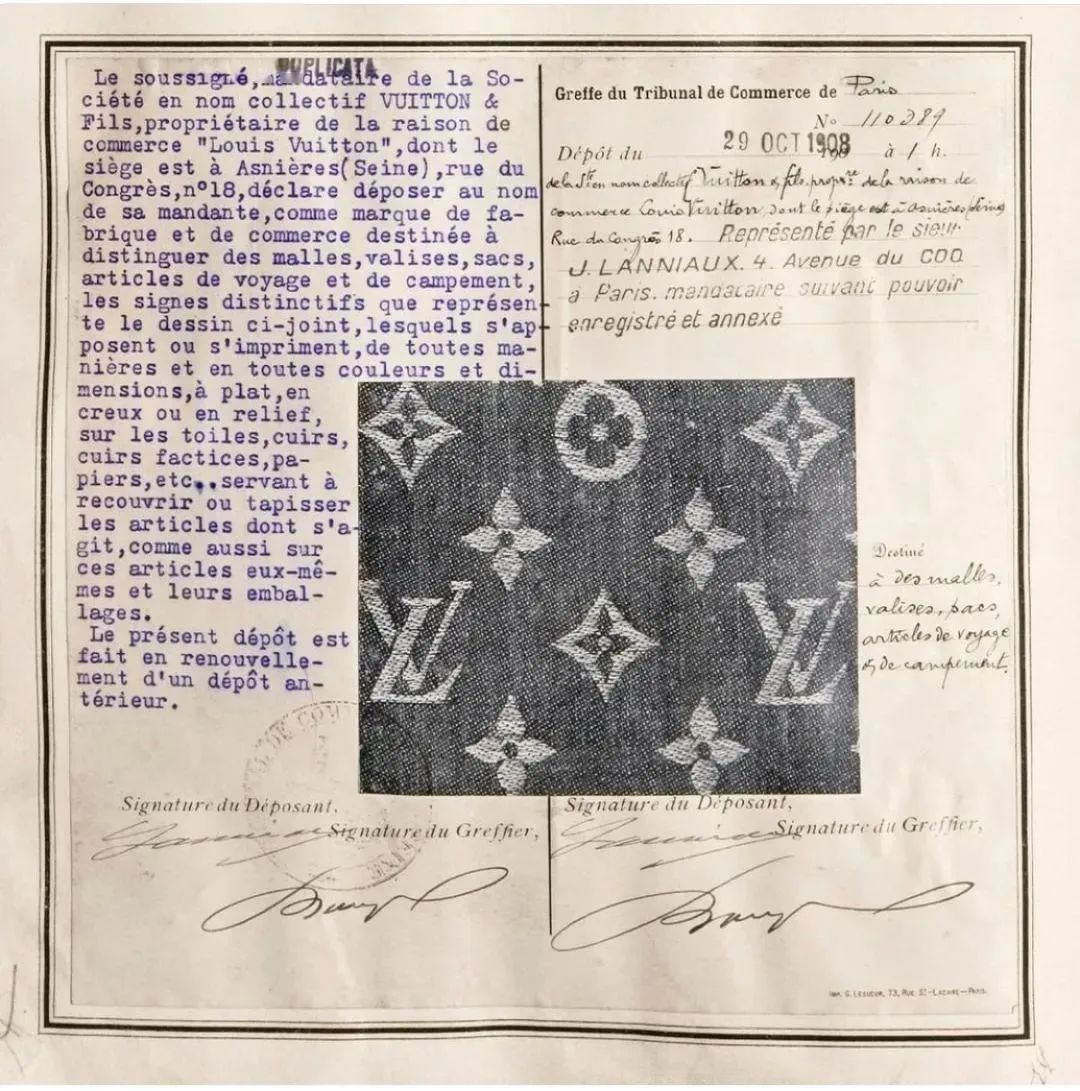 DUPLICATA
Le soussigné, mandataire de la So-
ciété en nom collectif VUITTON &
Fils,propriétaire de la raison de
commerce "Louis Vuitton",dont le
siège est à Asnières(Seine),rue du
Congrès,n°18,déclare déposer au nom
de sa mandante,comme marque de fa-
brique et de commerce destinée à
distinguer des malles,valises,sacs,
articles de voyage et de campement,
les signes distinctifs que représen-
te le dessin ci-joint,lesquels s'ap-
posent ou s'impriment,de toutes ma-
nières et en toutes couleurs et di-
mensions,à plat,en
creux ou en relief,
sur les toiles,cuirs,
cuirs factices,pa-
piers,etc..servant à
recouvrir ou tapisser
les articles dont s'a-
git,comme aussi sur
ces articles eux-mê-
mes et leurs embal-
lages.
Le présent dépôt est
fait en renouvelle-
ment d'un dépôt an-
térieur.
Signature du Déposant,
Signature du Greffier,
Greffe du Tribunal de Commerce de Paris
N° 110389
Dépôt du 29 OCT 1908 à 1 h.
de la Sté en nom collectif Vuitton & fils, propre de la raison de
commerce Louis Vuitton, dont le siège est à Asnières (Seine)
Rue du Congrès 18. Représenté par le sieur
J. LANNIAUX. 4. Avenue du COQ
à Paris. mandataire suivant pouvoir
enregistré et annexé
LV LV
Destiné
à des malles,
valises, sacs,
articles de voyage
& de campement.
Signature du Déposant,
Signature du Greffier,
IMP. G. LESUEUR, 73, RUE ST-LAZARE—PARIS.